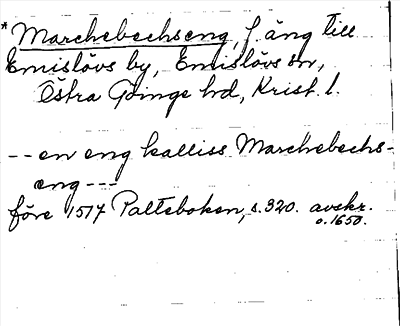 * Marchebechseng, f. äng till
Emislövs by, Emislövs sn,
Östra Göinge hd, Krist. l.
-- en eng kalliss Marchebechs-
eng ---
före 1517 Palteboken, s. 320. avskr.
o. 1650.